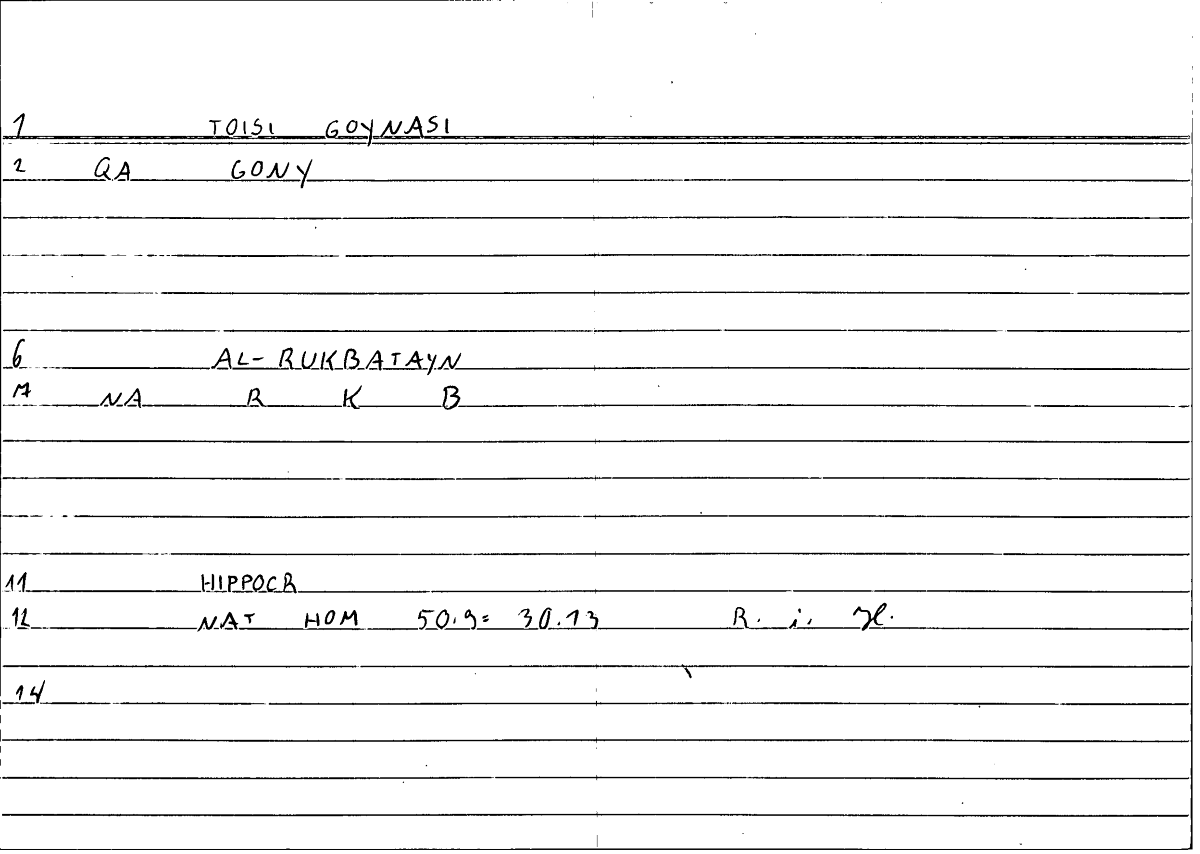 1 TOISI GOYNASI
2 QA GONY
6 AL-RUKBATAYN
7 NA R K B
11 HIPPOCR
12 NAT HOM 50.9= 30.13 R. i. H.
14